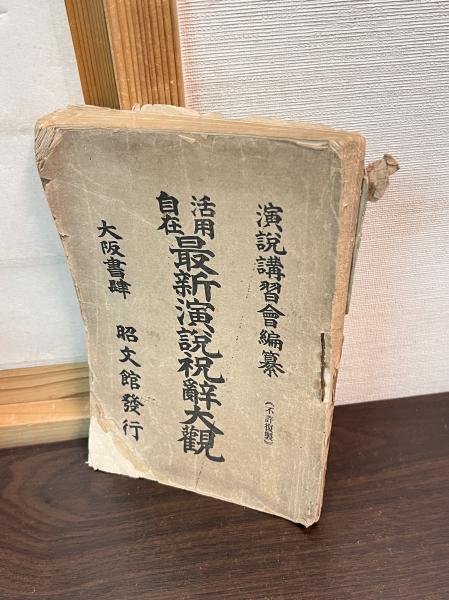 演説講習會編纂
(不許復製)
活用
自在
最新演説祝辭大觀
大阪書肆
昭文館發行